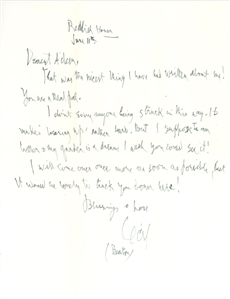 Reddish House
June 11th
Dearest Adeen,
That was the nicest thing I have had written about me!
You are a real pal.
I don't envy anyone being stuck in this way. It
makes bearing up rather hard, but I suppose
my garden is a dream I wish you could see it!
I will come over once more as soon as possible, but
it would be lovely to you here!
Blessings & love
Cecil
(Beaton)